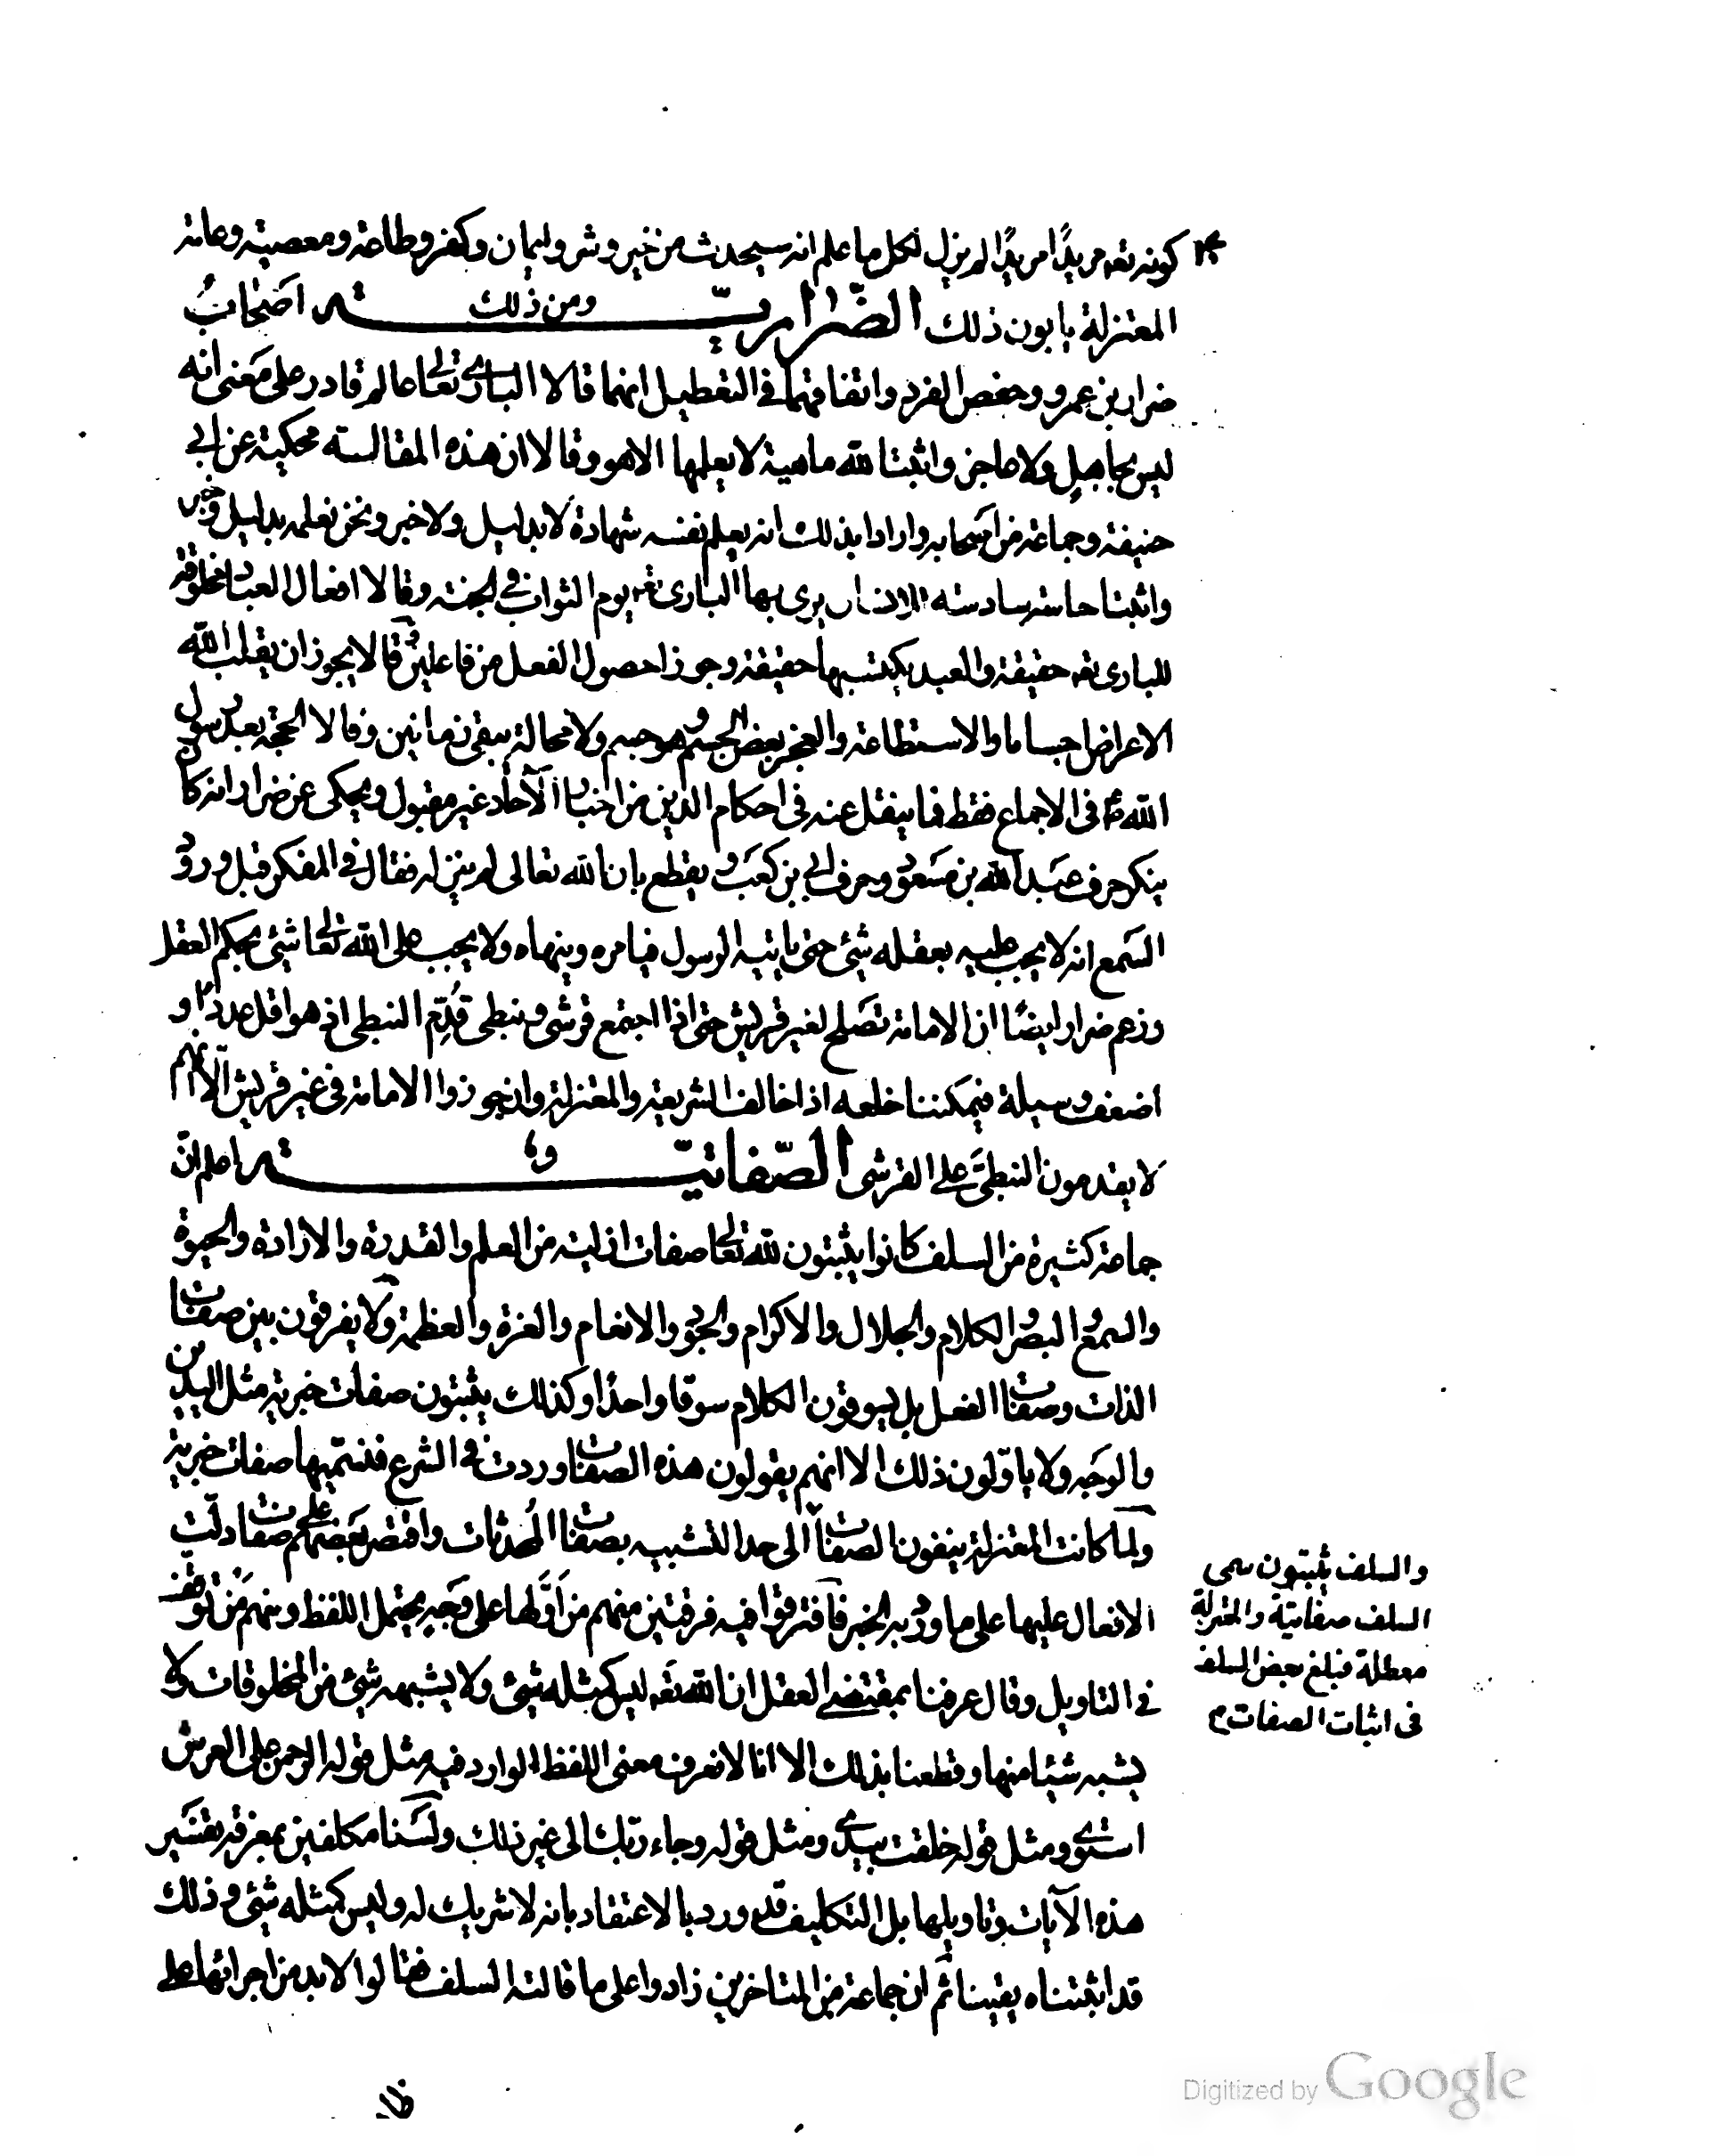 كونه تعه مريدًا مريدًا لم يزل لكل ما علم انه سيحدث من خير وشر وايمان وكفر وطاعة ومعصية وعامة
المعتزلة يابون ذلك ومن ذلك الضّراريّة اصحابُ
ضرار بن عمرو وحفص الفرد واتفاقهما في التعطيل انهما قالا البارى تعالى عالم قادر على مَعنى انه
ليس بجاهل ولا عاجز واثبتا لله ماهية لا يعلمها الا هو وقالا ان هذه المقالة محكية عن ابي
حنيفة وجماعة من اصحابه وارادا بذلك انه يعلم نفسه شهادة لا بدليل ولا خبر ونحن نعلمه بدليل وخبر
واثبتا حاسة سادسة للانسان يرى بها البارى تعه يوم الثواب في الجنة وقالا افعال العباد مخلوقة
للبارى تعه حقيقة والعبد يكتسبها حقيقة وجوزا حصول الفعل من فاعلين وقالا يجوز ان يقلب الله
الاعراض اجساما والاستطاعة والعجز بعض الجسم وهو جسم ولا محالة يبقى زمانين وقالا الحجة بعد رسول
الله في الاجماع فقط فما ينقل عنه في احكام الدين من اخبار الآحاد غير مقبول ويحكى عن ضرار انه كان
ينكر حرف عبد الله بن مسعود وحرف ابي بن كعب ويقطع بان الله تعالى لم ينزله فقال في المفكر قبل ورود
السَمع انه لا يجب عليه بعقله شئ حتى ياتيه الرسول فيامره وينهاه ولا يجب على الله تعالى شئ بحكم العقل
وزعم ضرار ايضًا ان الامامة تصَلح لغير قريش حتى اذا اجتمع قرشى ونبطى قُدِّم النبطى اذ هو اقل عددًا و
اضعف وسيلة فيمكننا خلعه اذا خالف الشريعة والمعتزلة وان جوزوا الامامة في غير قريش الّا انهم
لا يقدمون النبطىَّ على القرشى الصّفاتيّة اعلم انّ
جماعة كثيرة من السلف كانوا يثبتون لله تعالى صفات ازلية من العلم والقدرة والارادة والحيوة
والسمع والبصر والكلام والجلال والاكرام والجود والانعام والعزة والعظمة ولا يفرقون بين صفات
الذات وصفات الفعل بل يسوقون الكلام سوقا واحدًا وكذلك يثبتون صفات خبرية مثل اليدين
والوجه ولا ياوّلون ذلك الا انهم يقولون هذه الصفات وردت في الشرع فنسَمّيها صفات خبرية
ولما كانت المعتزلة ينفون الصفات الى حد التشبيه بصفات المُحدثات واقتصر بعضهم على صفات دلّت
الافعال عليها على ما ورد به الخبر فافترقوا فيه فرقتين منهم من اَوَّلها على وَجهٍ يحتمل اللفظ ومنهم مَن توقف
في التاويل وقال عرفنا بمقتضى العقل ان الله تعه ليس كمثله شئ ولا يشبهه شئ من المخلوقات ولا
يشبه شيئا منها وقطعنا بذلك الا انا لا نعرف معنى اللفظ الوارد فيه مثل قوله الرحمن على العرش
استوى ومثل قوله خلقت بيدى ومثل قوله وجاء ربّك الى غير ذلك ولسَنا مكلفين بمعرفة تفسَير
هذه الآيات وتاويلها بل التكليف قد ورد بالاعتقاد بانه لا شريك له وليس كمثله شئ وذلك
قد اثبتناه يقينا ثم ان جماعة من المتاخرين زادوا على ما قالته السلف فقالوا لا بد من اجرائها على
والسلف يثبتون سمى
السلف صفاتية والمعتزلة
معطلة فبلغ بعض السلف
في اثبات الصفات م